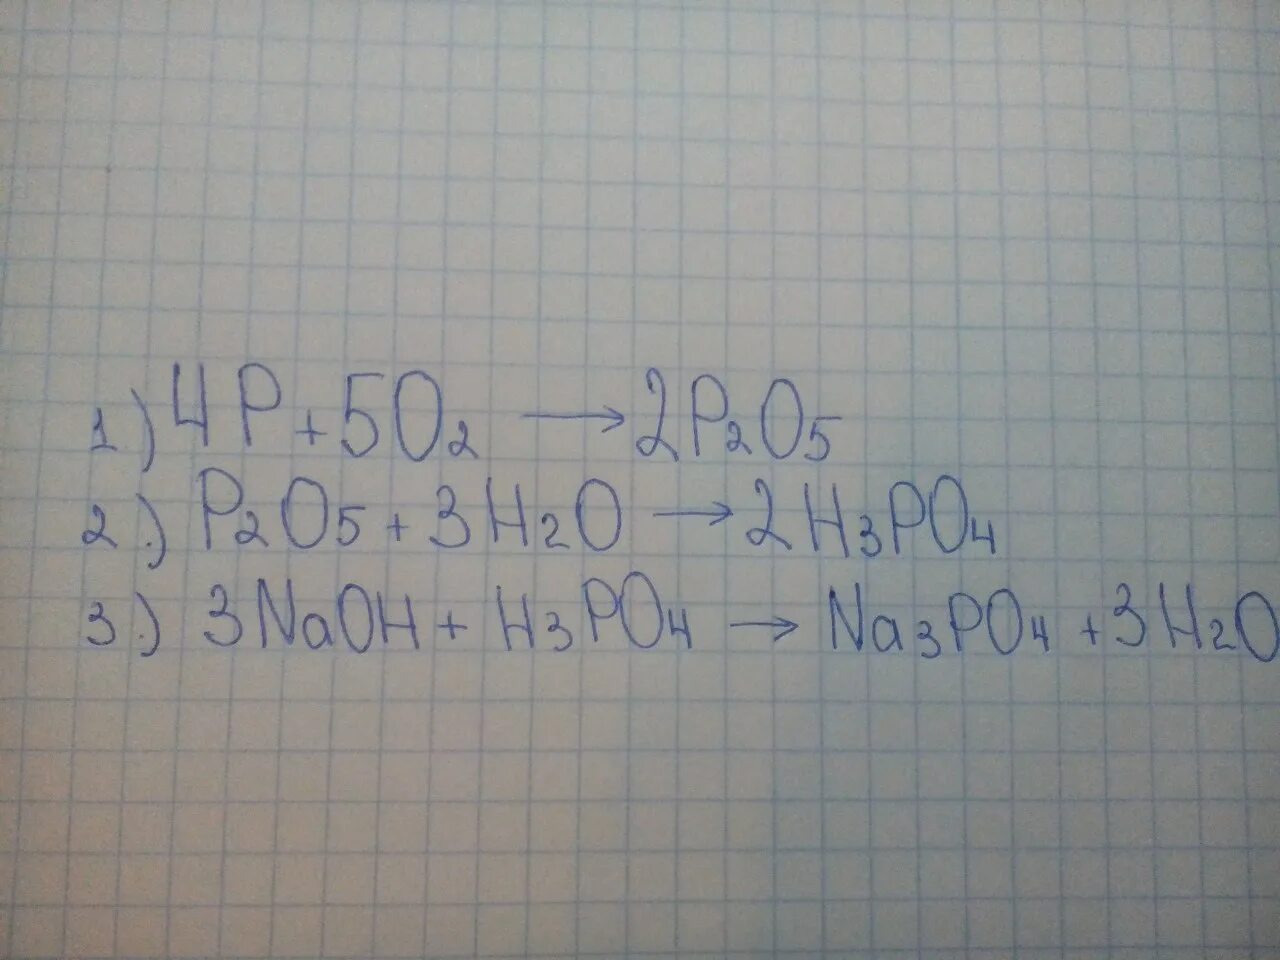 1.) 4P + 5O₂ → 2P₂O₅
2.) P₂O₅ + 3H₂O → 2H₃PO₄
3.) 3NaOH + H₃PO₄ → Na₃PO₄ + 3H₂O